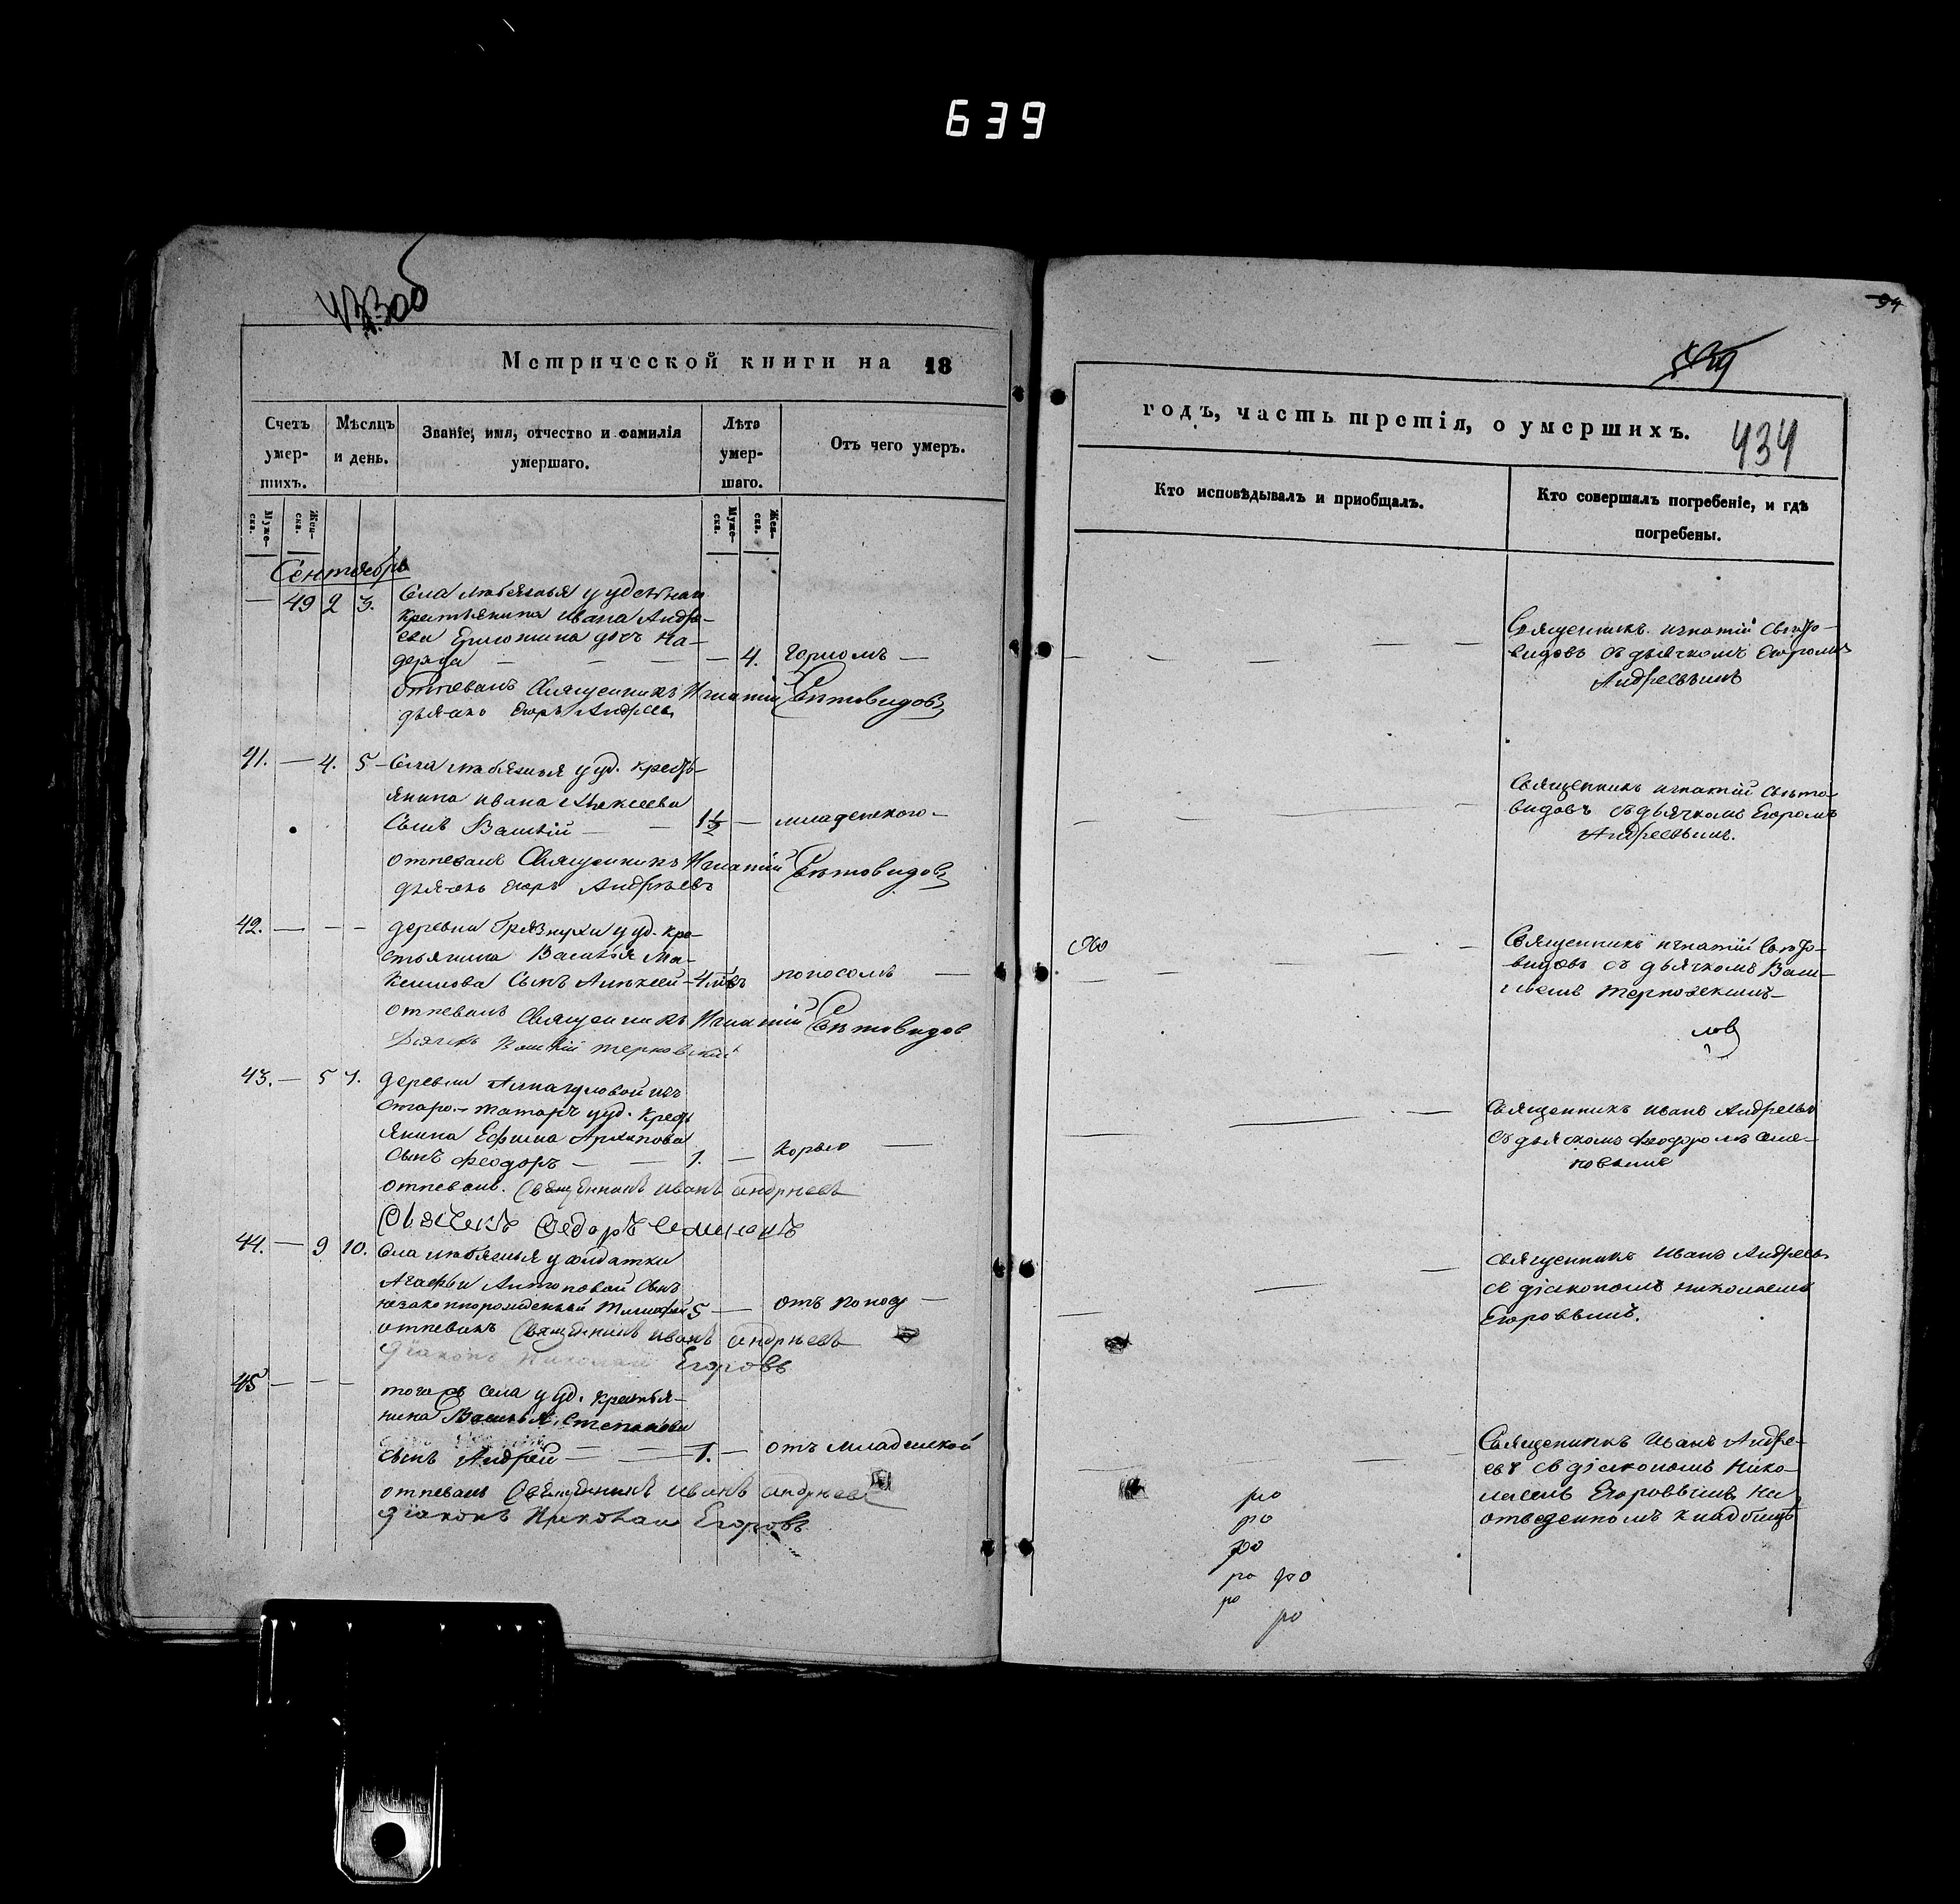 639
Метрической книги на 18
Счетъ умер-шихъ.
Мѣсяцъ и день.
Званіе, имя, отчество и фамилія умершаго.
Лѣта умер-шаго.
Отъ чего умеръ.
Муже-ска.
Жен-ска.
Муже-ска.
Жен-ска.
Сентябрь
— 49 2 3. Села у удѣльнаго
крестьянина Ивана Андре-
ева дочь На-
дежда — — — — 4. горломъ —
отпевалъ Священникъ Игнатій Свѣтовидовъ
дьячекъ Егоръ Андреевъ
41. — 4. 5 Села у уд. кресть-
янина Ивана Алексеева
сынъ Василій — — 1½ — младенскаго —
отпевалъ Священникъ Игнатій Свѣтовидовъ
дьячекъ Егоръ Андрѣевъ
42. — — — деревни Грязнухи у уд. кре-
стьянина Василья Ма-
ксимова сынъ Алексей — 4 мѣс поносомъ —
отпевалъ Священникъ Игнатій Свѣтовидов
Дьячекъ Василій Терновскій
43. — 5 7. деревни изъ
старо-татаръ у уд. кресть
янина Ефима Архипова
сынъ Феодоръ — — 1. — корью —
отпевалъ Священникъ Иванъ Андрѣевъ
Дьячекъ Федоръ Семеновъ
44. — 9 10. Села у солдатки
Агафьи Антоновой сынъ
незаконнорожденный Тимофей 5 — отъ поносу —
отпевалъ Священникъ Иванъ Андрѣевъ
Діаконъ Николай Егоровъ
45 — — — того жъ села у уд. крестья-
нина Василья Степанова
сынъ Андрей — — 1. — отъ младенской
отпевалъ Священникъ Иванъ Андрѣевъ
Діаконъ Николай Егоровъ
94
годъ, часть третія, о умершихъ.
434
Кто исповѣдывалъ и пріобщалъ.
Кто совершалъ погребеніе, и гдѣ погребены.
Священникъ Игнатій Свѣто-
видовъ съ дьячкомъ Егоромъ
Андреевымъ
Священникъ Игнатій Свѣто-
видовъ съ дьячкомъ Егоромъ
Андреевымъ.
Священникъ Игнатій Свѣто-
видовъ съ дьячкомъ Васи-
льемъ
Священникъ Иванъ Андреевъ
съ дьячкомъ Феодоромъ Семе-
новымъ
Священникъ Иванъ Андреевъ
съ діакономъ Николаемъ
Егоровымъ.
Священникъ Иванъ Андре-
евъ съ діакономъ Нико-
лаемъ Егоровымъ на
отведенномъ кладбищѣ
ро
ро
ро
ро ро
ро
ро